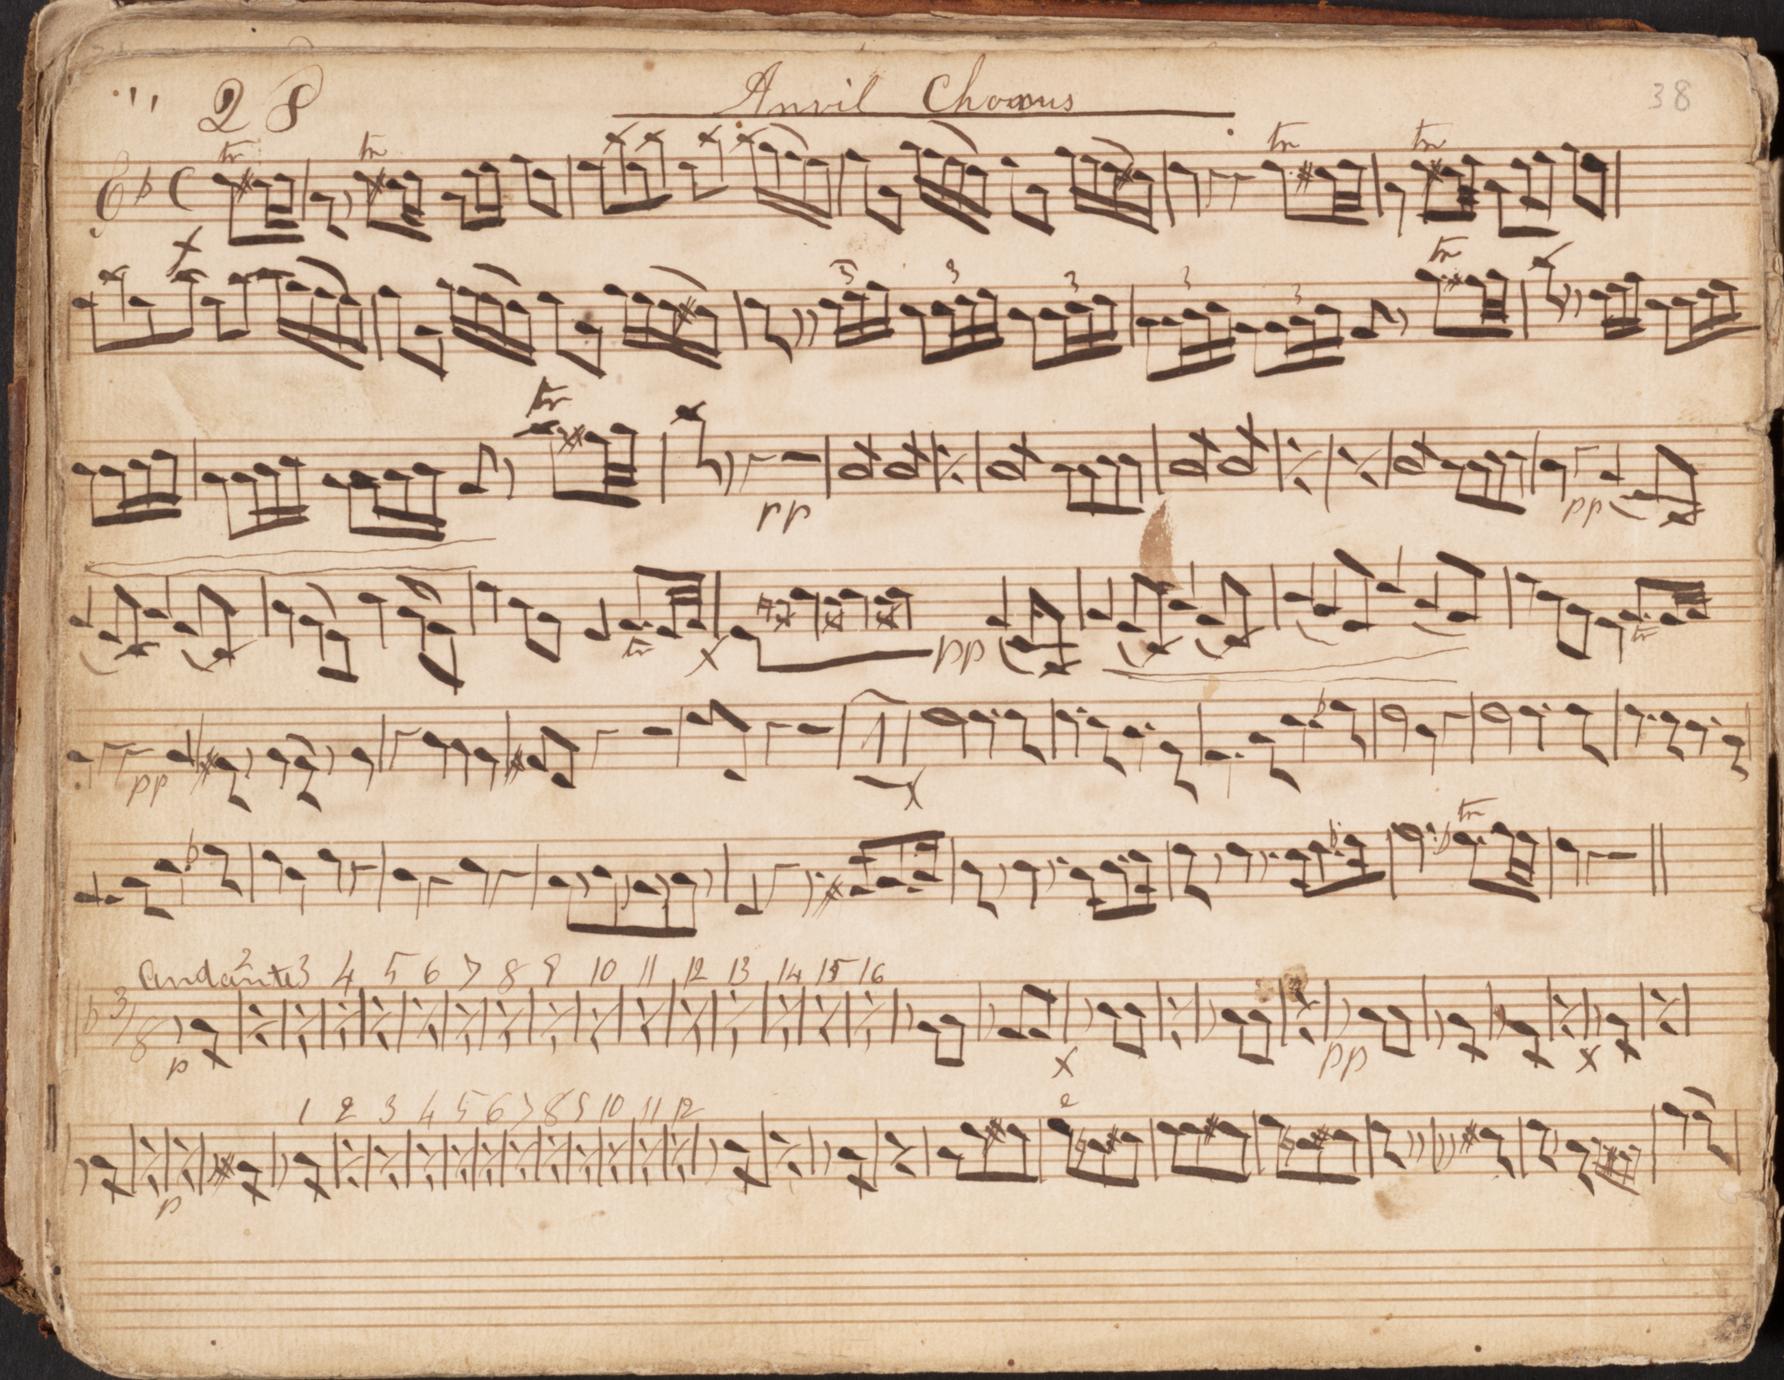 28 Anvil Chorus 38
tr tr tr tr
3 3 3 3 3 tr
tr
pp pp
tr pp tr
pp
tr
Andante 2 3 4 5 6 7 8 9 10 11 12 13 14 15 16
3/8 p pp
1 2 3 4 5 6 7 8 9 10 11 12 2
p